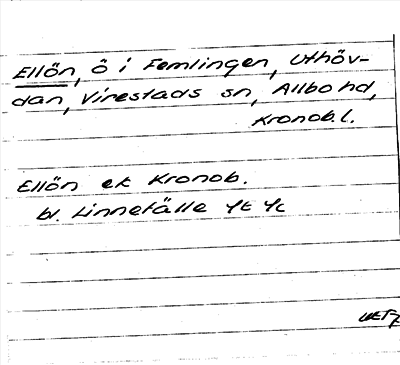 Ellön, ö i Femlingen, Uthöv-
dan, Virestads sn, Allbo hd,
Kronob.l.
Ellön ek Kronob.
bl. Linnefälle